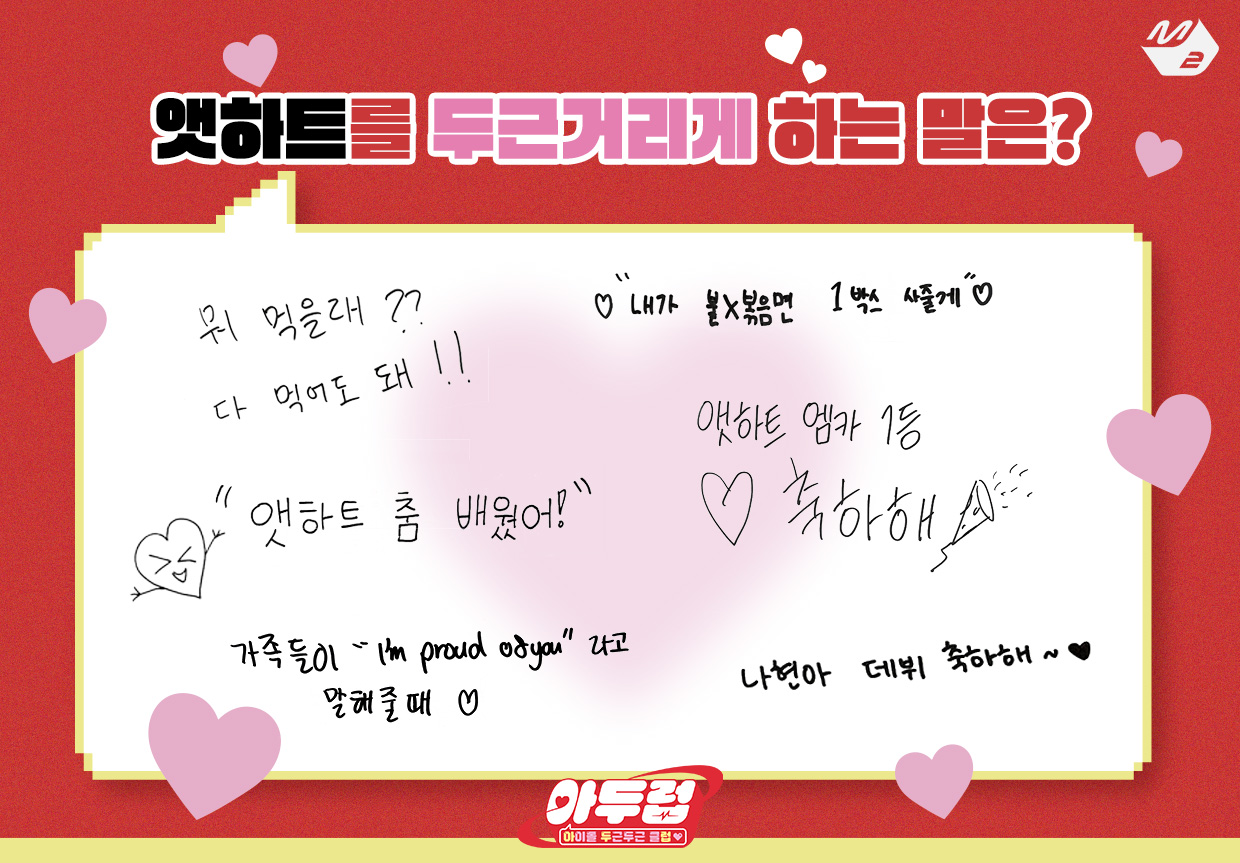 M2
앳하트를 두근거리게 하는 말은?
뭐 먹을래 ??
다 먹어도 돼 !!
♡ "내가 불X볶음면 1박스 사줄게" ♡
앳하트 엠카 1등
♡ 축하해
"앳하트 춤 배웠어!"
가족들이 "I'm proud of you" 라고
말해줄때 ♡
나현아 데뷔 축하해 ~ ♥
아두럽
아이돌 두근두근 클럽